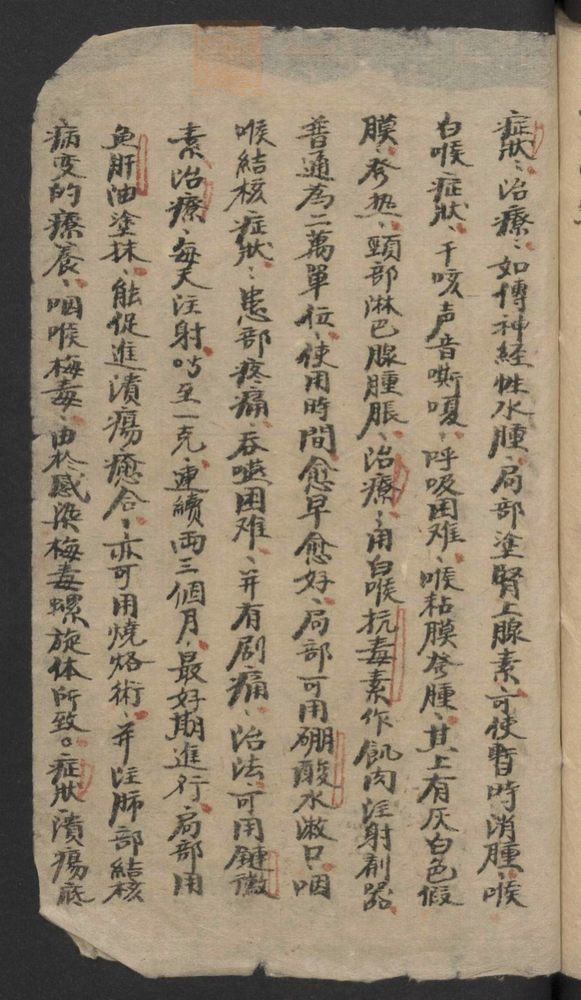 症狀、治療、如傳神経性水腫、局部塗腎上腺素、可使暫時消腫、喉
白喉症狀、干咳声音嘶嗄、呼吸困难、喉粘膜發腫、其上有灰白色假
膜、發热、頸部淋巴腺腫脹、治療、用白喉抗毒素作飢肉注射劑器、
普通為二萬單位、使用時間愈早愈好、局部可用硼酸水漱口、咽
喉結核症狀、患部疼痛、吞嚥困难、并有剧痛、治法、可用鏈黴
素治療、每天注射、至一克、連續兩三個月、最好期進行、局部用
魚肝油塗抹、能促進潰瘍癒合、亦可用燒烙術、并注肺部結核
病变的療養、咽喉梅毒、由於感染梅毒螺旋体所致。症狀、潰瘍底